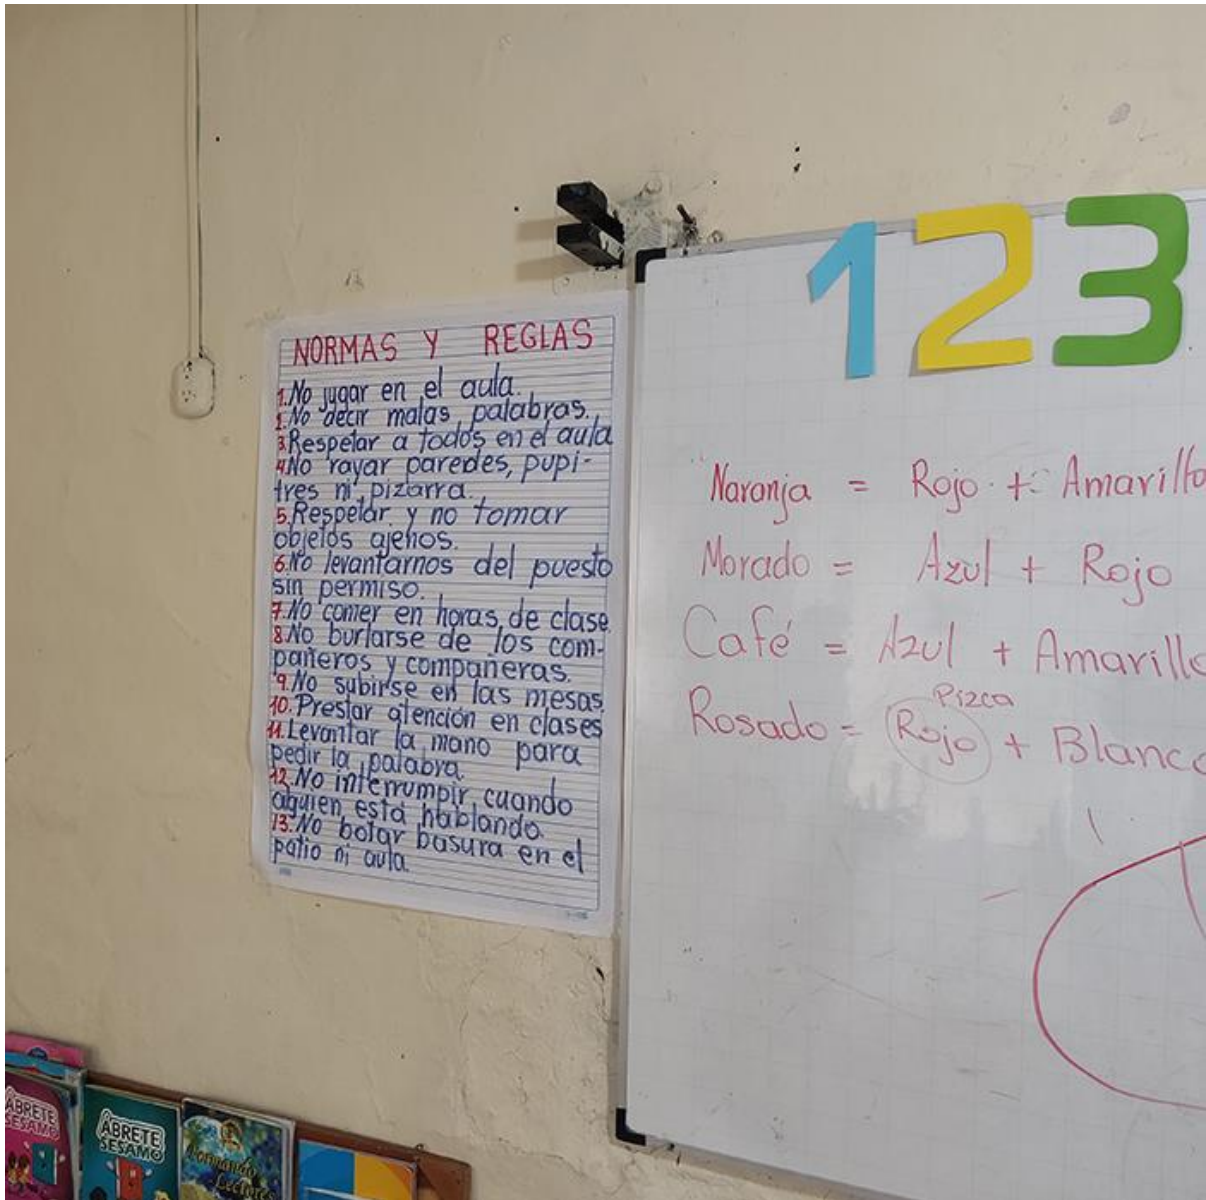 NORMAS Y REGLAS
1. No jugar en el aula.
2. No decir malas palabras.
3. Respetar a todos en el aula
4. No rayar paredes, pupi-
tres ni pizarra.
5. Respetar y no tomar
objetos ajenos.
6. No levantarnos del puesto
sin permiso.
7. No comer en horas de clase.
8. No burlarse de los com-
pañeros y compañeras.
9. No subirse en las mesas.
10. Prestar atención en clases
11. Levantar la mano para
pedir la palabra.
12. No interrumpir cuando
alguien está hablando.
13. No botar basura en el
patio ni aula.
123
Naranja = Rojo + Amarillo
Morado = Azul + Rojo
Café = Azul + Amarillo
Pizca
Rosado = Rojo + Blanco
ÁBRETE
SESAMO
ÁBRETE
SESAMO
Formando
Lectores